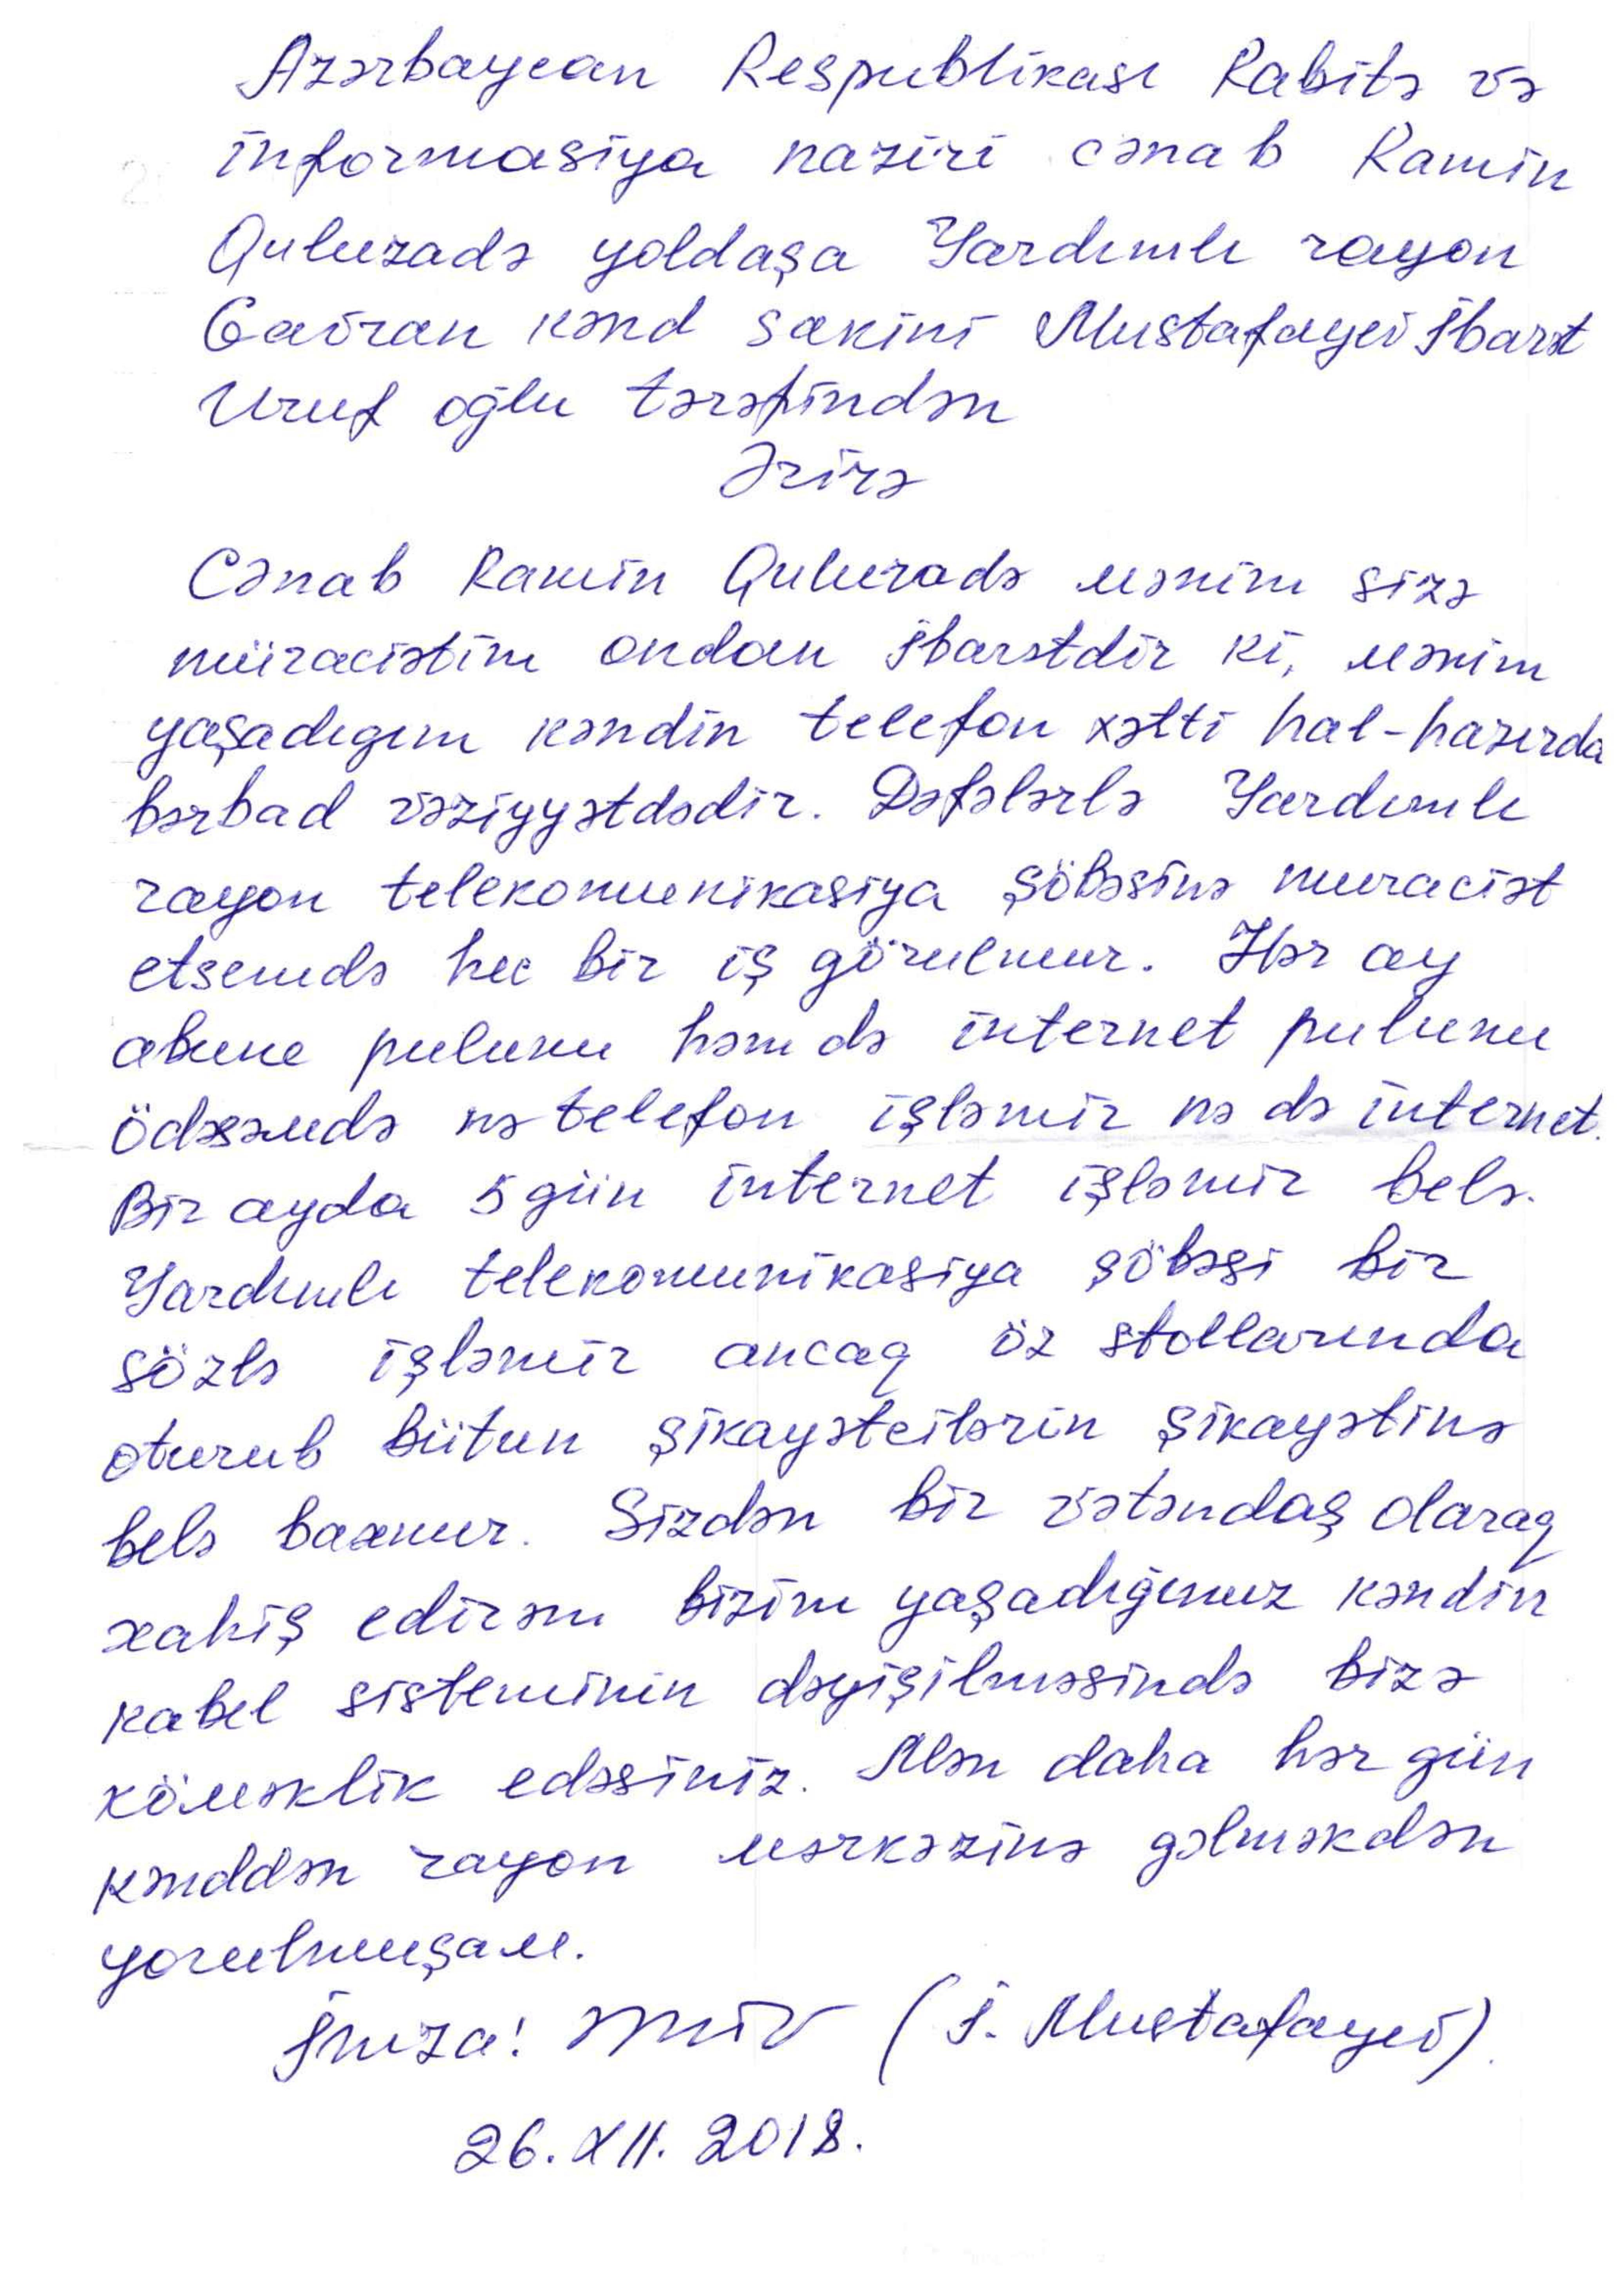 Azərbaycan Respublikası Rabitə və
informasiya naziri cənab Ramin
Quluzadə yoldaşa Yardımlı rayon
Gavran kənd sakini Mustafayev İbarət
Uruf oğlu tərəfindən
Ərizə
Cənab Ramin Quluzadə mənim sizə
müraciətim ondan ibarətdir ki, mənim
yaşadıgım kəndin telefon xətti hal-hazırda
bərbad vəziyyətdədir. Dəfələrlə Yardımlı
rayon telekomunikasiya şöbəsinə muraciət
etsemdə hec bir iş görulmur. Hər ay
abune pulunu həm də internet pulunu
ödəsəmdə nə telefon işləmir nə də internet.
Bir ayda 5 gün internet işləmir belə.
Yardımlı telekomunikasiya şöbəsi bir
sözlə işləmir ancaq öz stollarında
oturub bütun şikayətcilərin şikayətinə
belə baxmır. Sizdən bir vətəndaş olaraq
xahiş edirəm bizim yaşadığımız kəndin
kabel sisteminin dəyişilməsində bizə
köməklik edəsiniz. Mən daha hər gün
kənddən rayon mərkəzinə gəlməkdən
yorulmuşam.
İmza! (İ. Mustafayev)
26. XII. 2018.